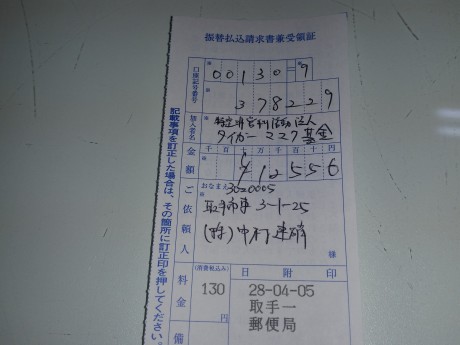 振替払込請求書兼受領証
口座記号番号
00130=9
378229
加入者名
特定非営利活動法人
タイガーマスク基金
金額
千 百 十 万 千 百 十 円
¥12556
ご依頼人
おなまえ
302-0005
取手市東 3-1-25
(株)中村建硝
様
料金
(消費税込み)
130 円
日 附 印
28-04-05
取手一
郵便局
備
記載事項を訂正した場合は、その箇所に訂正印を押してください。